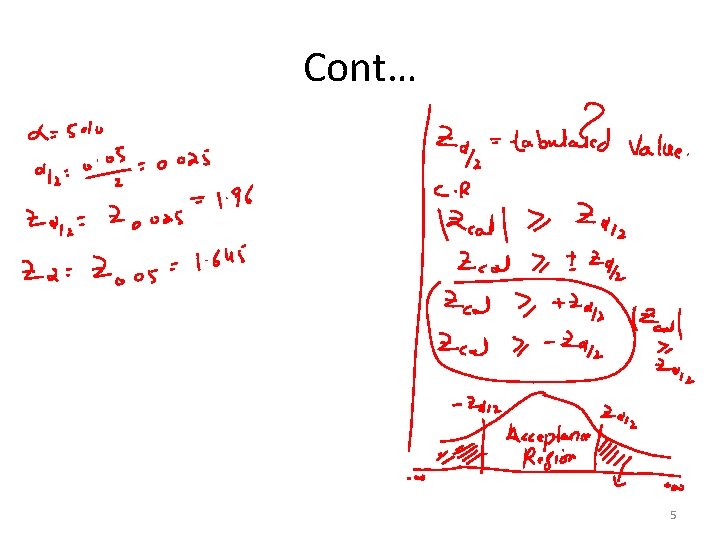 Cont…
α = 5%
α/2 = 0.05/2 = 0.025
Zα/2 = Z0.025 = 1.96
Z2 = Z0.05 = 1.645
Zα/2 = tabulated Value.
?
C.R
|Zcal| ≥ Zα/2
Zcal ≥ ± Zα/2
Zcal ≥ +Zα/2
Zcal ≥ -Zα/2
|Zcal|
≥
Zα/2
-Zα/2
Zα/2
Acceptance
Region
-∞
+∞
5